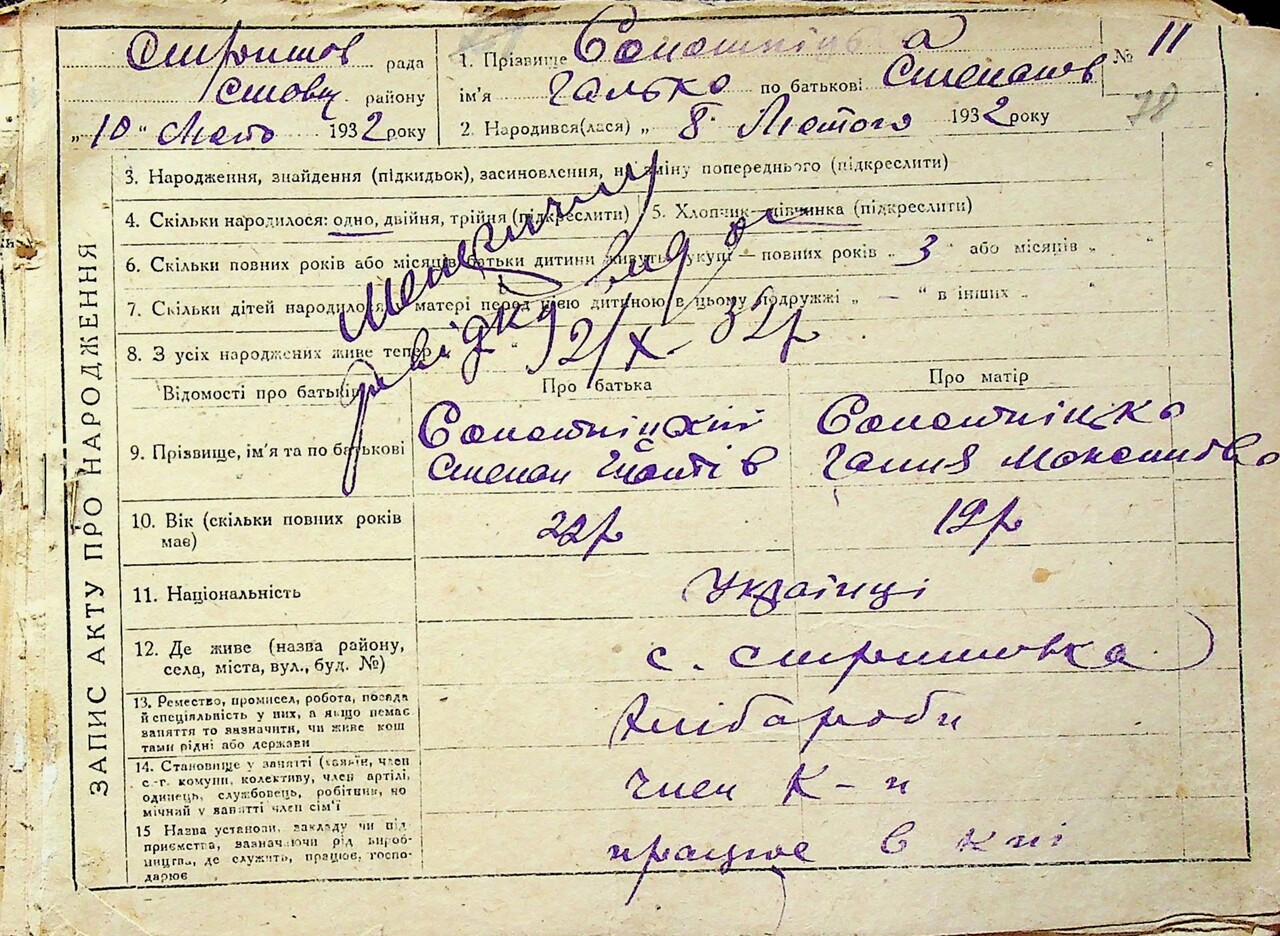 рада
району
„10“ 1932 року
1. Прізвище № 11
ім'я по батькові Степанов
2. Народився(лася) „ 8 Лютого 1932 року
ЗАПИС АКТУ ПРО НАРОДЖЕННЯ
3. Народження, знайдення (підкидьок), засиновлення, на зміну попереднього (підкреслити)
4. Скільки народилося: одно, двійня, трійня (підкреслити)
5. Хлопчик—дівчинка (підкреслити)
6. Скільки повних років або місяців батьки дитини живуть укупі — повних років „ 3 “ або місяців „ “
7. Скільки дітей народилося у матері перед цією дитиною в цьому подружжі „ — “ в інших „ “
8. З усіх народжених живе тепер „ “
2/X-32р
Відомості про батьків
Про батька
Про матір
9. Прізвище, ім'я та по батькові
Степан
10. Вік (скільки повних років має)
22р
19р
11. Національність
Українці
12. Де живе (назва району,
села, міста, вул., буд. №)
с.
13. Ремество, промисел, робота, посада
й спеціяльність у них, а якщо немає
заняття то зазначити, чи живе кош
тами рідні або держави
Хлібароби
14. Становище у занятті (хазяїн, член
с.-г. комуни, колективу, член артілі,
одинець, службовець, робітник, но
мічний у занятті член сім'ї
член К-п
15 Назва установи, закладу чи під
приємства, зазначаючи рід вироб-
ництва, де служить, працює, госпо-
дарює
працює в кпі